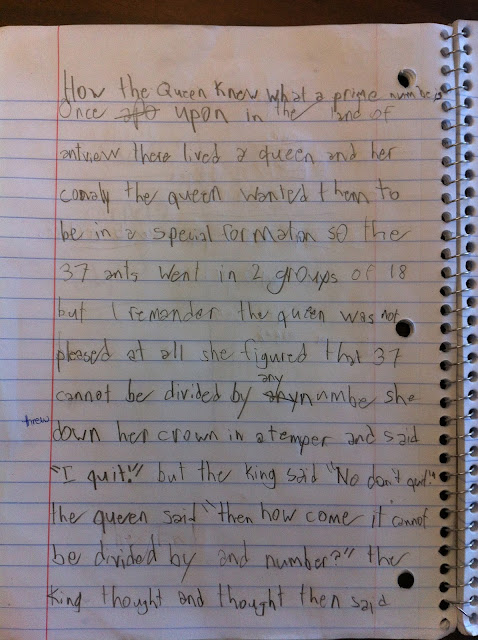 How the Queen Knew what a prime number is
Once afo upon in the land of
antview there lived a queen and her
comaly the queen wanted them to
be in a special formation so the
37 ants went in 2 groups of 18
but 1 remander the queen was not
pleased at all she figured that 37
cannot be divided by any numbe she
threw down her crown in a temper and said
"I quit!" but the king said "No don't quit!"
the queen said "then how come it cannot
be divided by and number?" the
King thought and thought then said